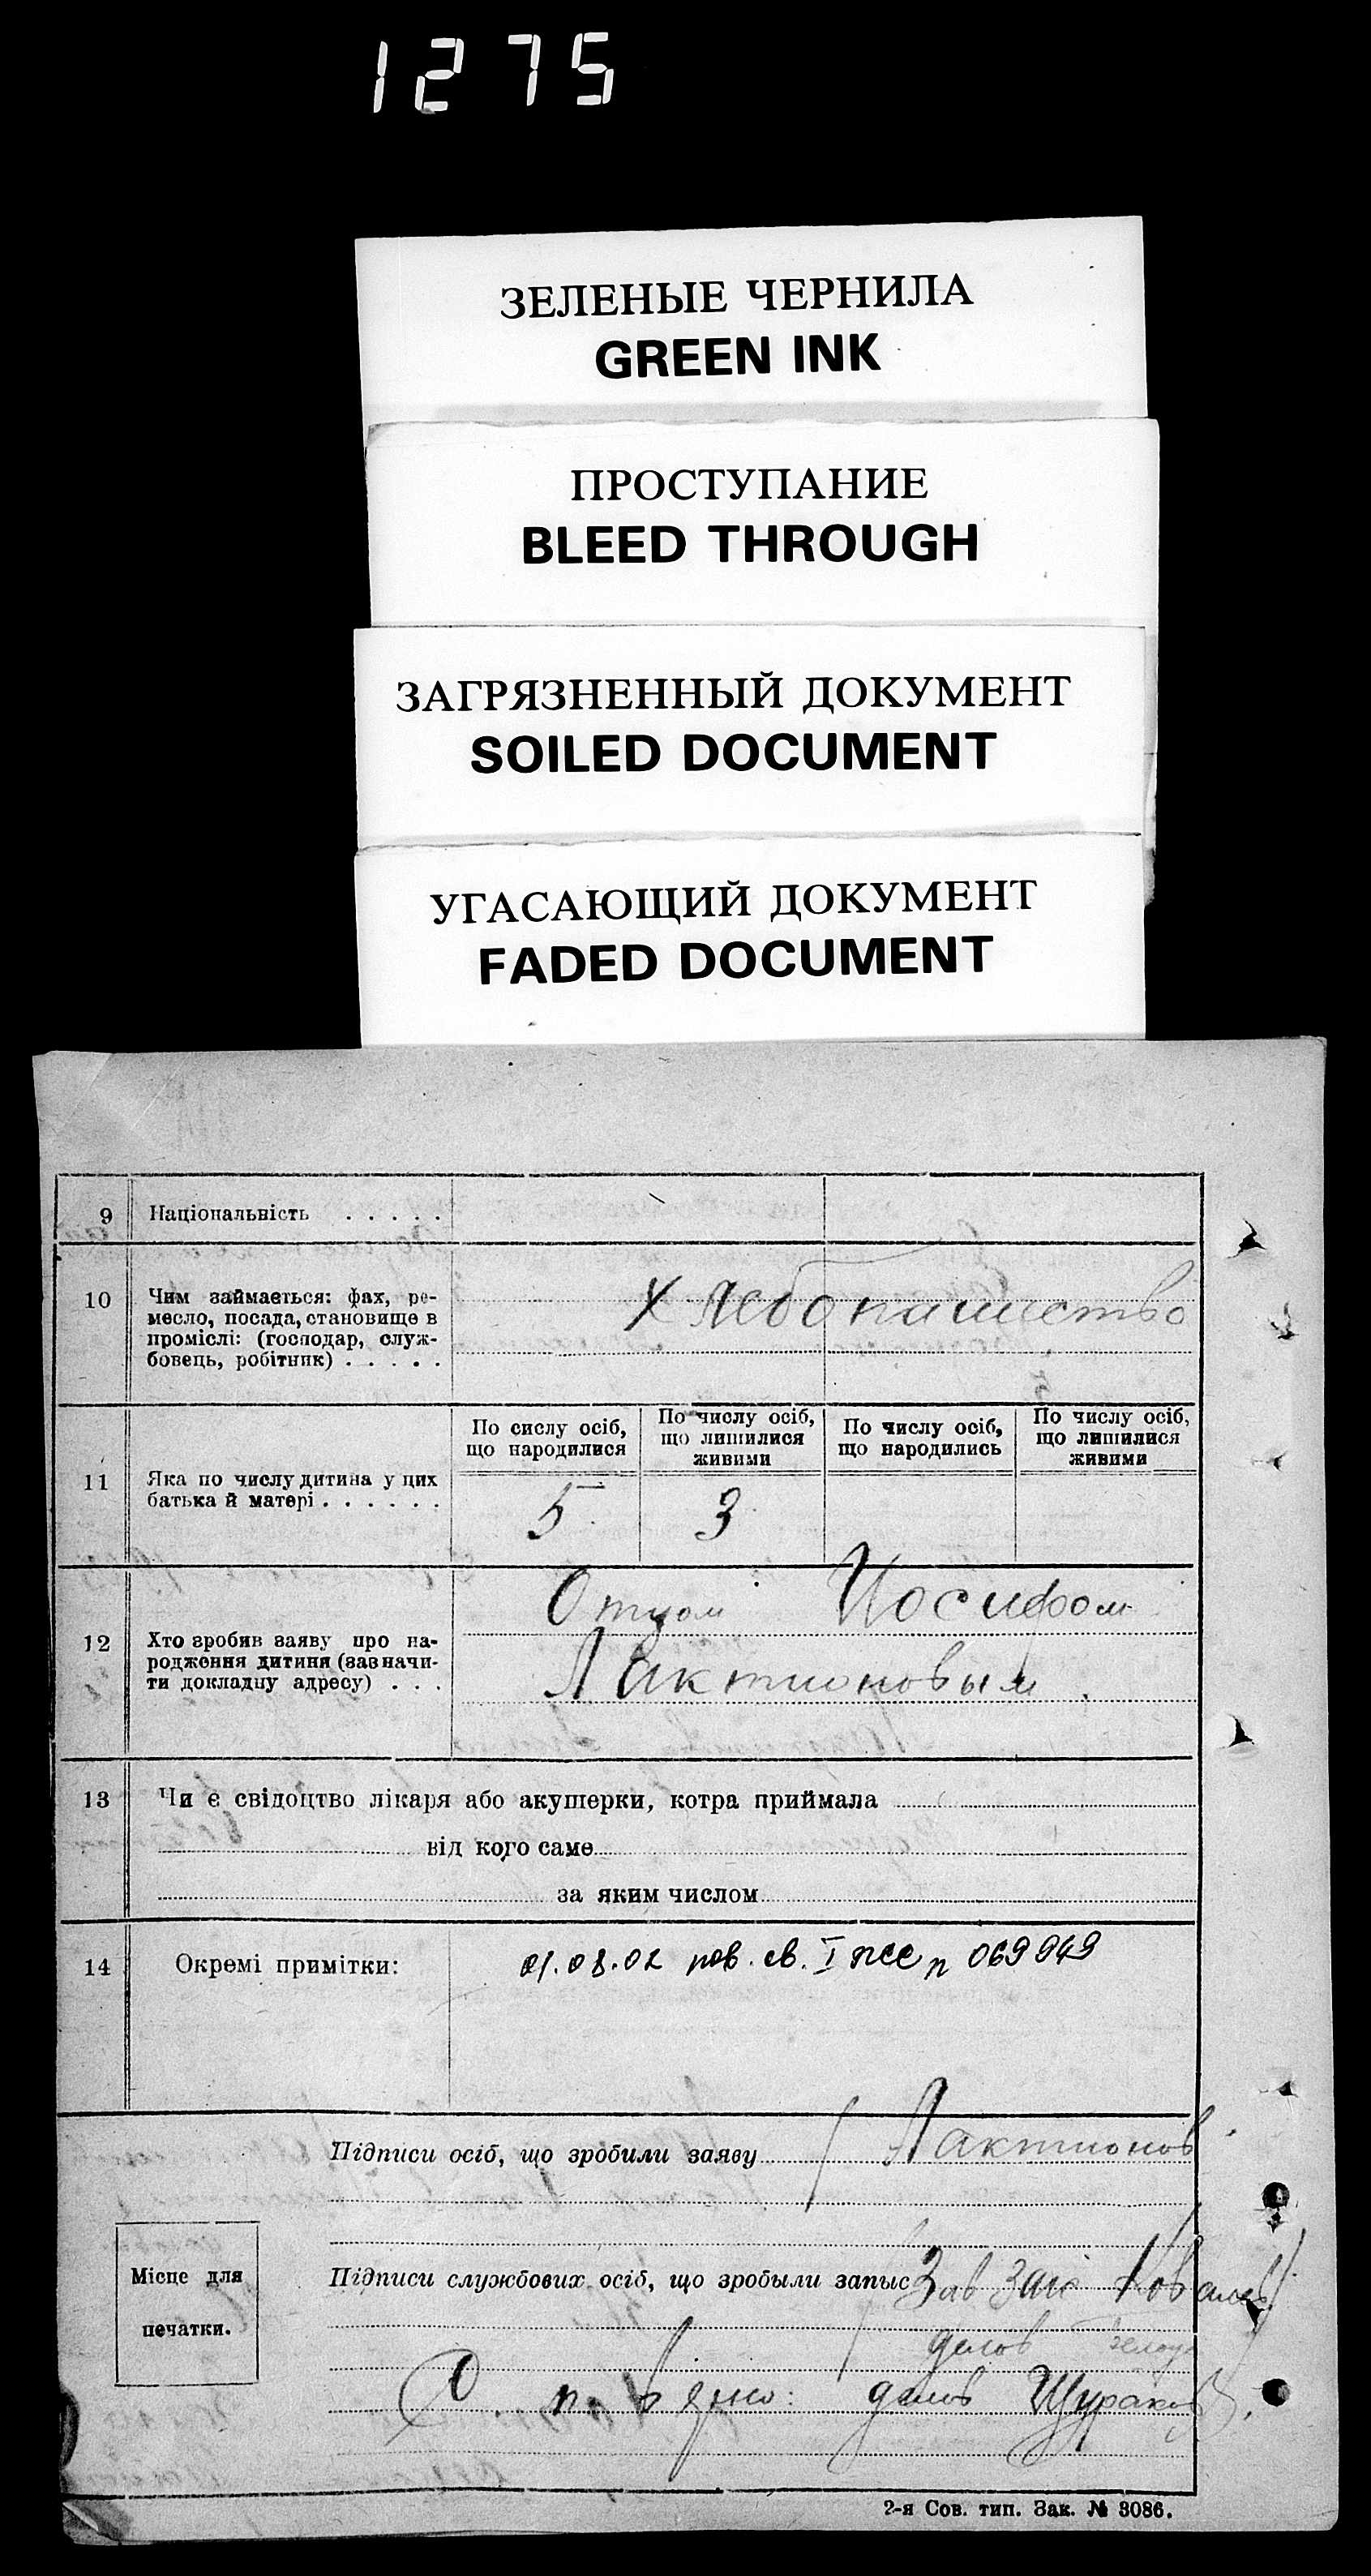 1275
ЗЕЛЕНЫЕ ЧЕРНИЛА
GREEN INK
ПРОСТУПАНИЕ
BLEED THROUGH
ЗАГРЯЗНЕННЫЙ ДОКУМЕНТ
SOILED DOCUMENT
УГАСАЮЩИЙ ДОКУМЕНТ
FADED DOCUMENT
9 Національність . . . . .
10 Чим займається: фах, ре-
месло, посада, становище в
проміслі: (господар, служ-
бовець, робітник) . . . . .
Хлебопашество
11 Яка по числу дитина у цих
батька й матері . . . . . .
По сислу осіб,
що народилися
5
По числу осіб,
що лишилися
живими
3
По числу осіб,
що народились
По числу осіб,
що лишилися
живими
12 Хто зробив заяву про на-
родження дитини (зазначи-
ти докладну адресу) . . .
Отцом Иосифом
Лактионовым.
13 Чи є свідоцтво лікаря або акушерки, котра приймала
від кого саме
за яким числом
14 Окремі примітки:
01.08.02 пов. св. I 069949
Підписи осіб, що зробили заяву Лактионов
Підписи службових осіб, що зробыли запыс Зав Загс
Місце для
печатки.
делов
делов
2-я Сов. тип. Зак. № 3086.